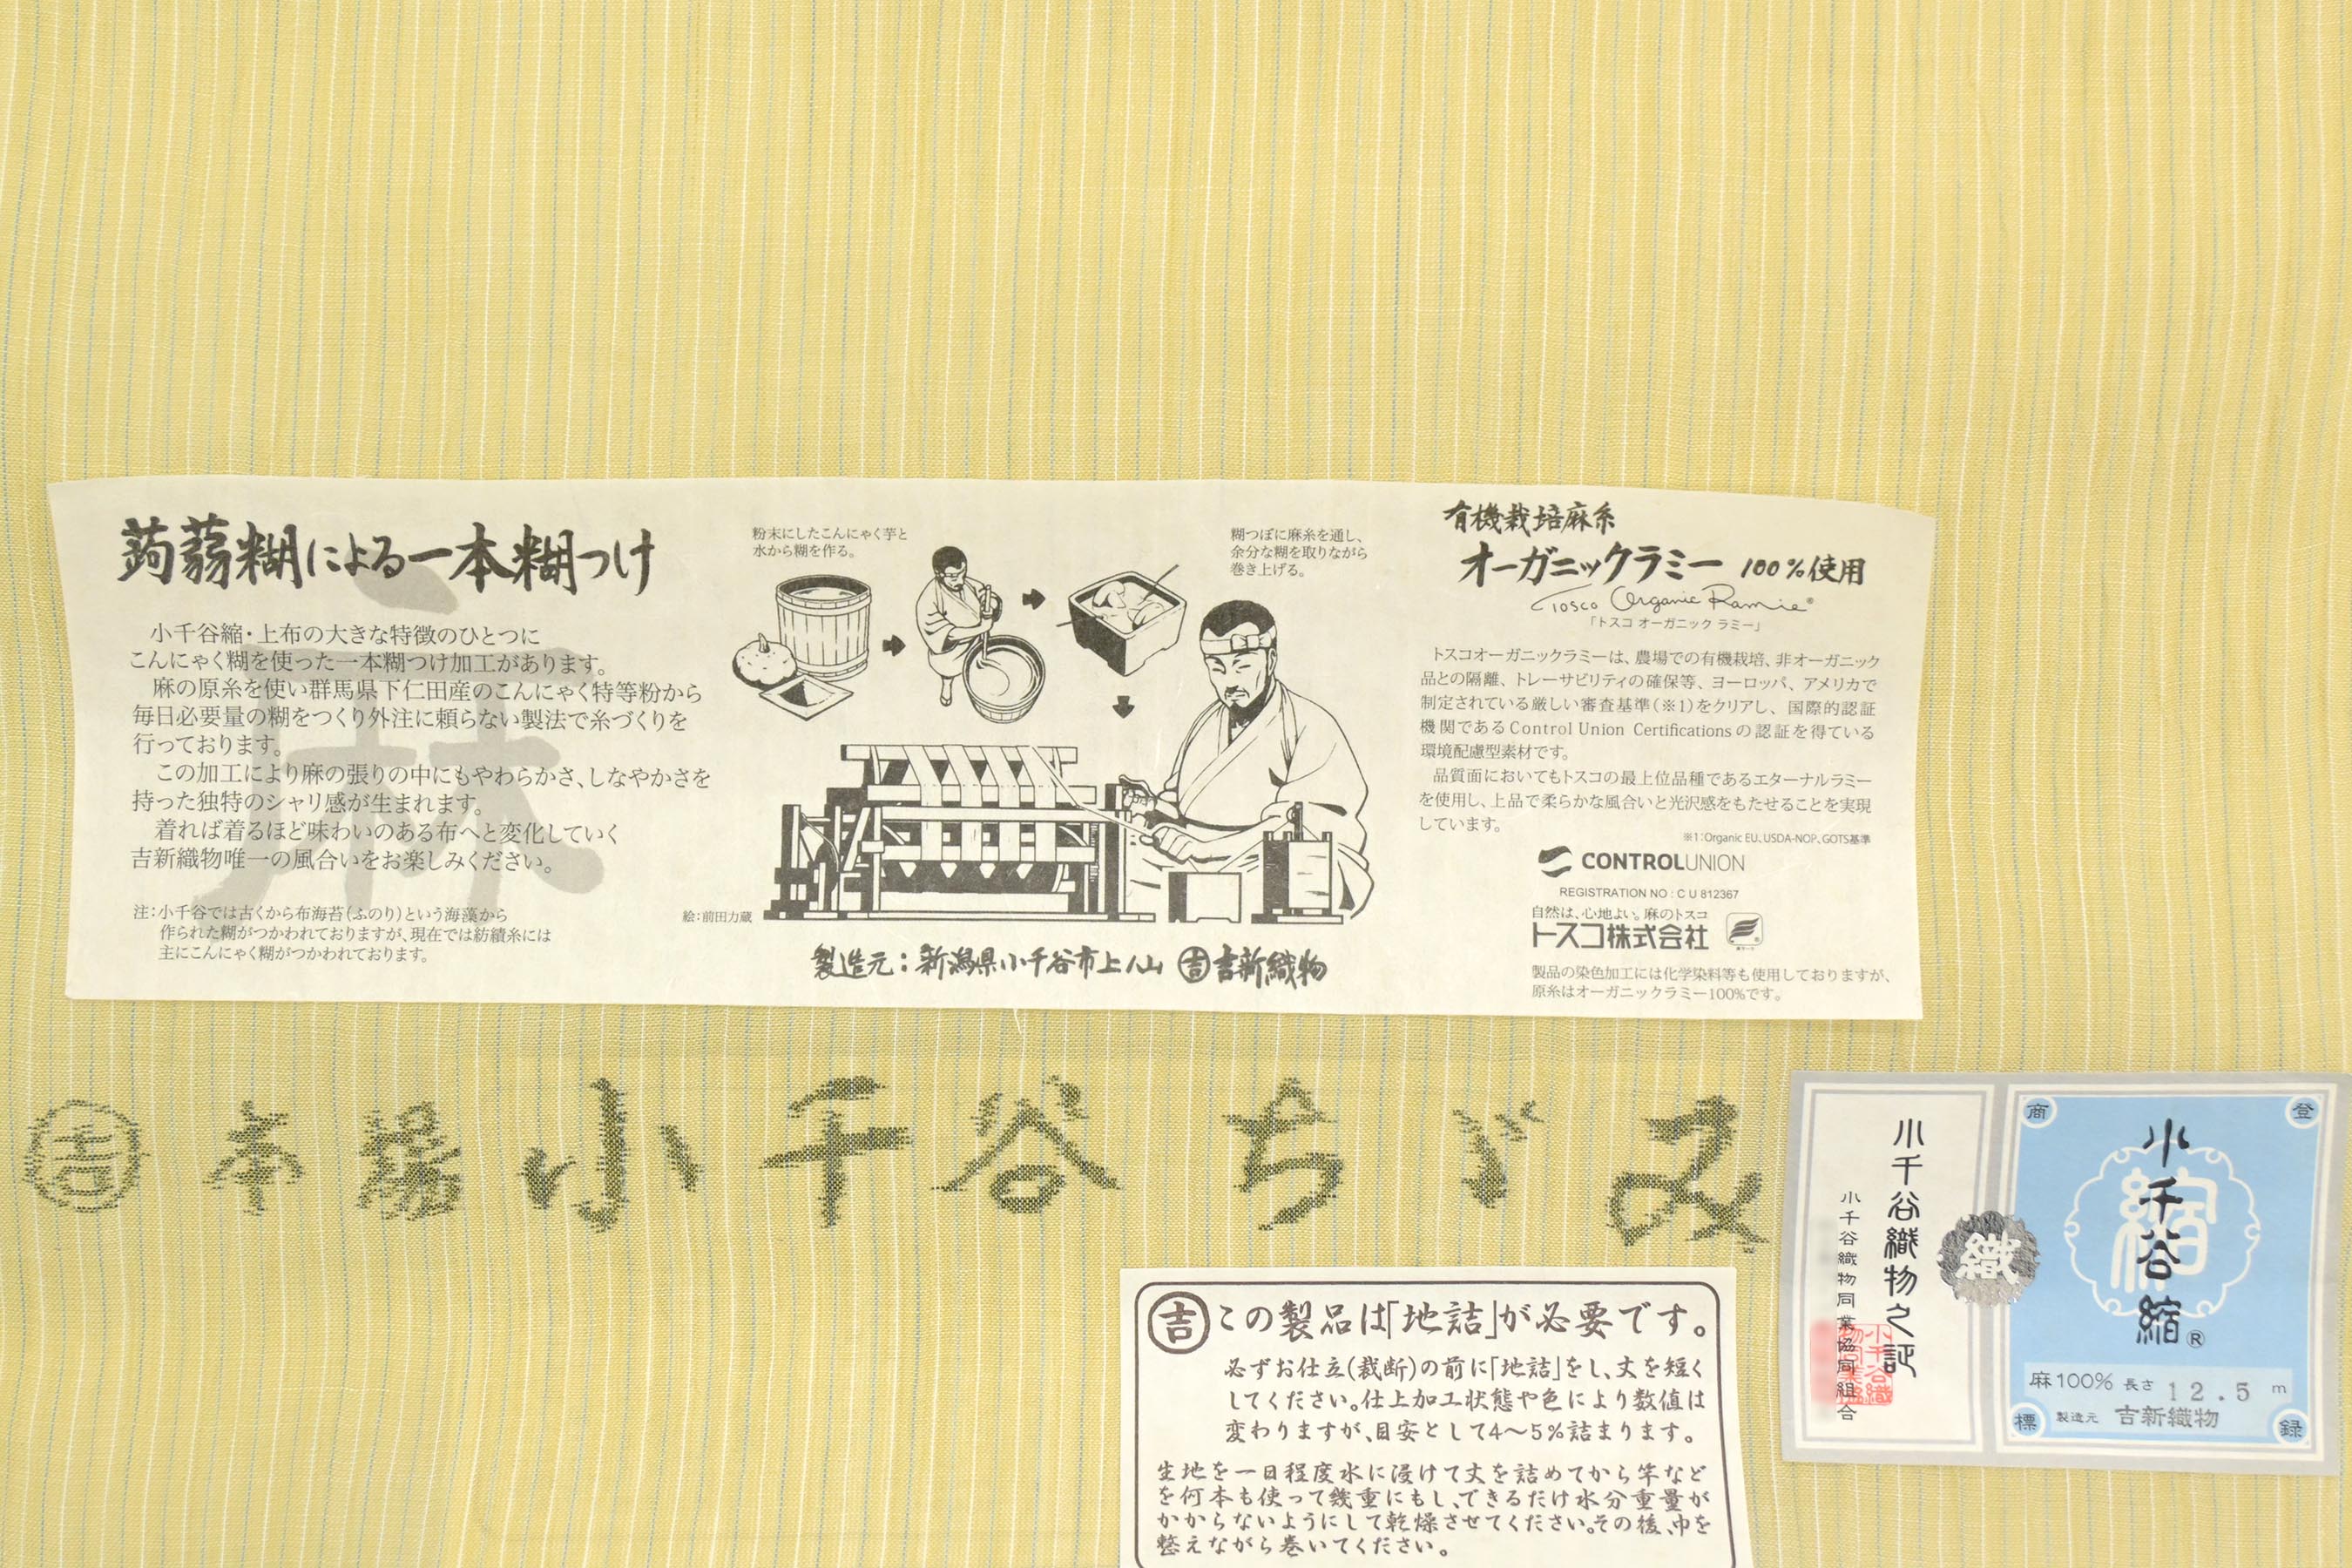 蒟蒻糊による一本糊つけ
小千谷縮・上布の大きな特徴のひとつに
こんにゃく糊を使った一本糊つけ加工があります。
麻の原糸を使い群馬県下仁田産のこんにゃく特等粉から
毎日必要量の糊をつくり外注に頼らない製法で糸づくりを
行っております。
この加工により麻の張りの中にもやわらかさ、しなやかさを
持った独特のシャリ感が生まれます。
着れば着るほど味わいのある布へと変化していく
吉新織物唯一の風合いをお楽しみください。
注：小千谷では古くから布海苔（ふのり）という海藻から
作られた糊がつかわれておりますが、現在では紡績糸には
主にこんにゃく糊がつかわれております。
麻
粉末にしたこんにゃく芋と
水から糊を作る。
糊つぼに麻糸を通し、
余分な糊を取りながら
巻き上げる。
絵：前田力蔵
製造元：新潟県小千谷市上ノ山 吉 吉新織物
有機栽培麻糸
オーガニックラミー 100%使用
Tosco Organic Ramie®
「トスコ オーガニック ラミー」
トスコオーガニックラミーは、農場での有機栽培、非オーガニック
品との隔離、トレーサビリティの確保等、ヨーロッパ、アメリカで
制定されている厳しい審査基準（※1）をクリアし、国際的認証
機関であるControl Union Certificationsの認証を得ている
環境配慮型素材です。
品質面においてもトスコの最上位品種であるエターナルラミー
を使用し、上品で柔らかな風合いと光沢感をもたせることを実現
しています。
※1：Organic EU、USDA-NOP、GOTS基準
CONTROLUNION
REGISTRATION NO : C U 812367
自然は、心地よい。麻のトスコ
トスコ株式会社
製品の染色加工には化学染料等も使用しておりますが、
原糸はオーガニックラミー100%です。
吉 本場小千谷ちぢみ
吉 この製品は「地詰」が必要です。
必ずお仕立(裁断)の前に「地詰」をし、丈を短く
してください。仕上加工状態や色により数値は
変わりますが、目安として4〜5%詰まります。
生地を一日程度水に浸けて丈を詰めてから竿など
を何本も使って幾重にもし、できるだけ水分重量が
かからないようにして乾燥させてください。その後、巾を
整えながら巻いてください。
小千谷織物之証
小千谷織物同業協同組合
織
登
録
商
標
縮
小千谷縮®
麻100% 長さ 12.5 m
製造元 吉新織物